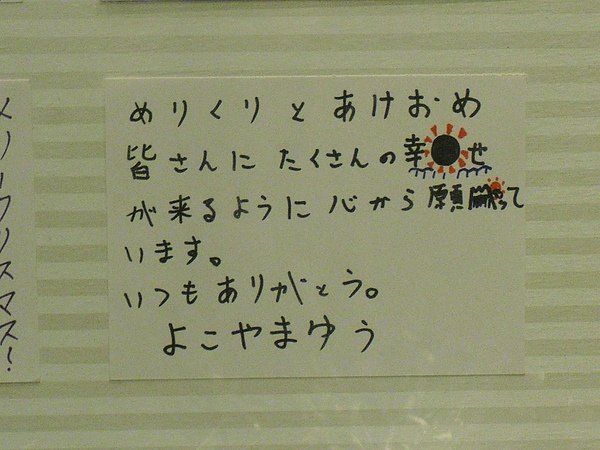 めりくりとあけおめ
皆さんにたくさんの幸せ
が来るように心から願って
います。
いつもありがとう。
よこやまゆう
メリークリスマス!